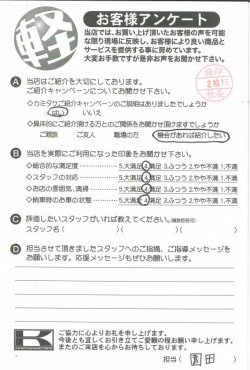 軽
お客様アンケート
当店では、お買い上げ頂いたお客様の声を可能
な限り現場に反映し、お客様により良い商品と
サービスを提供する事に努めています。
大変お手数ですが是非お声をお聞かせ下さい。
A 当店はご紹介を大切にしております。
ご紹介キャンペーンについてお聞かせ下さい。
◇カミタケご紹介キャンペーンのご説明はありましたでしょうか
はい いいえ
◇具体的にご紹介頂ける方との関係をお聞かせ頂けますでしょうか
ご親族 ご友人 職場の方 機会があれば紹介したい
B 当店を実際にご利用になった印象をお聞かせ下さい。
◇総合的な満足度 5.大満足 4.満足 3.ふつう 2.やや不満 1.不満
◇スタッフの対応 5.大満足 4.満足 3.ふつう 2.やや不満 1.不満
◇お店の雰囲気、清掃 5.大満足 4.満足 3.ふつう 2.やや不満 1.不満
◇納車時のお車の状態 5.大満足 4.満足 3.ふつう 2.やや不満 1.不満
C 評価したいスタッフがいれば教えてください。(複数回答可)
スタッフ名( )( )( )
D 担当させて頂きましたスタッフへのご指摘、ご指導メッセージを
お願いします。応援メッセージもぜひお願します。
ご協力に心よりお礼を申し上げます。
今後とも宜しくお引き立てご愛顧の程お願い申し上げます。
またのご来店を心からお待ちしております。
担当( 田 )